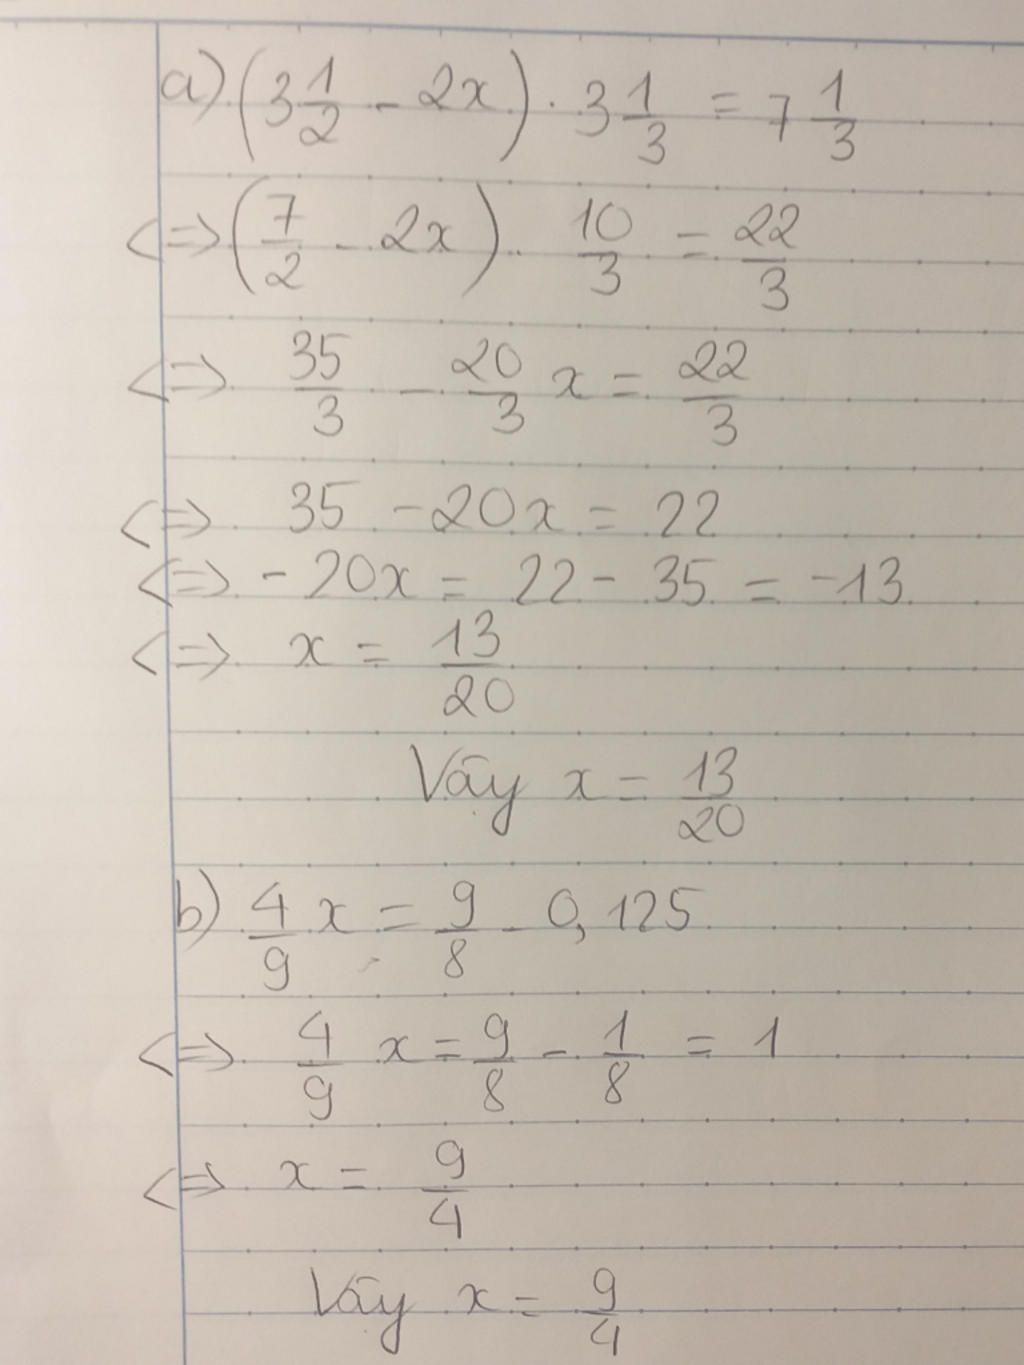 a) (3 1/2 - 2x) . 3 1/3 = 7 1/3
<=> (7/2 - 2x) . 10/3 = 22/3
<=> 35/3 - 20/3 x = 22/3
<=> 35 - 20x = 22
<=> - 20x = 22 - 35 = -13
<=> x = 13/20
Vậy x = 13/20
b) 4/9 x = 9/8 - 0,125
<=> 4/9 x = 9/8 - 1/8 = 1
<=> x = 9/4
Vậy x = 9/4